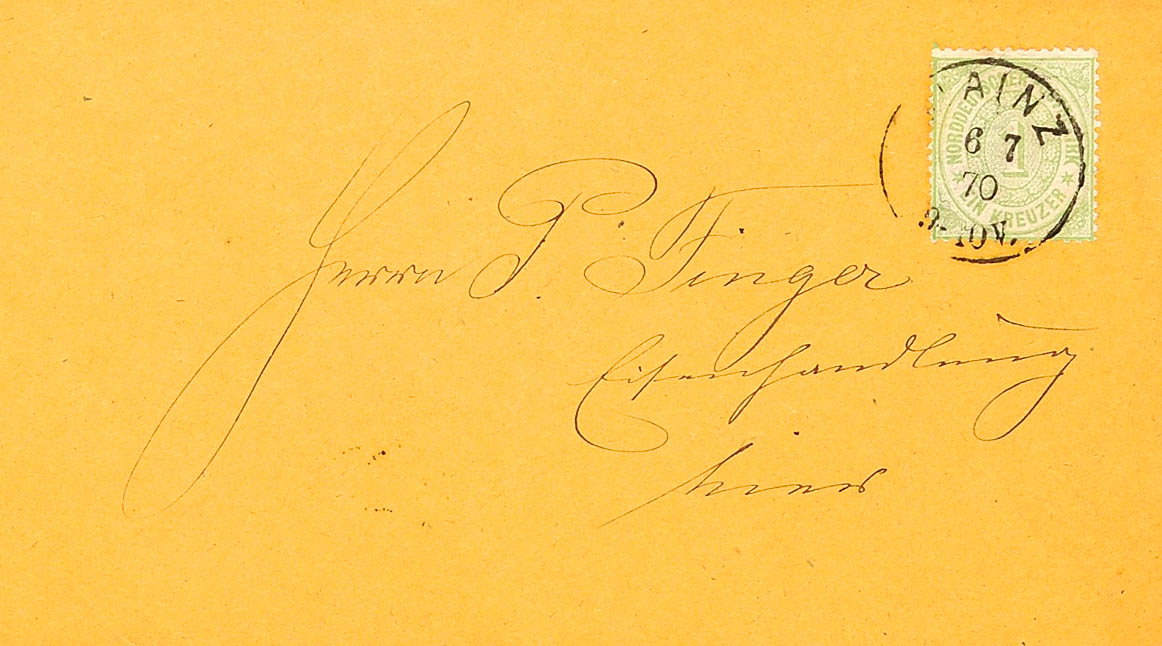 NORDDEUTSCHER POSTBEZIRK
1
EIN KREUZER
MAINZ
6 7
70
8-10V.
Herrn P. Finger
Eisenhandlung
hier